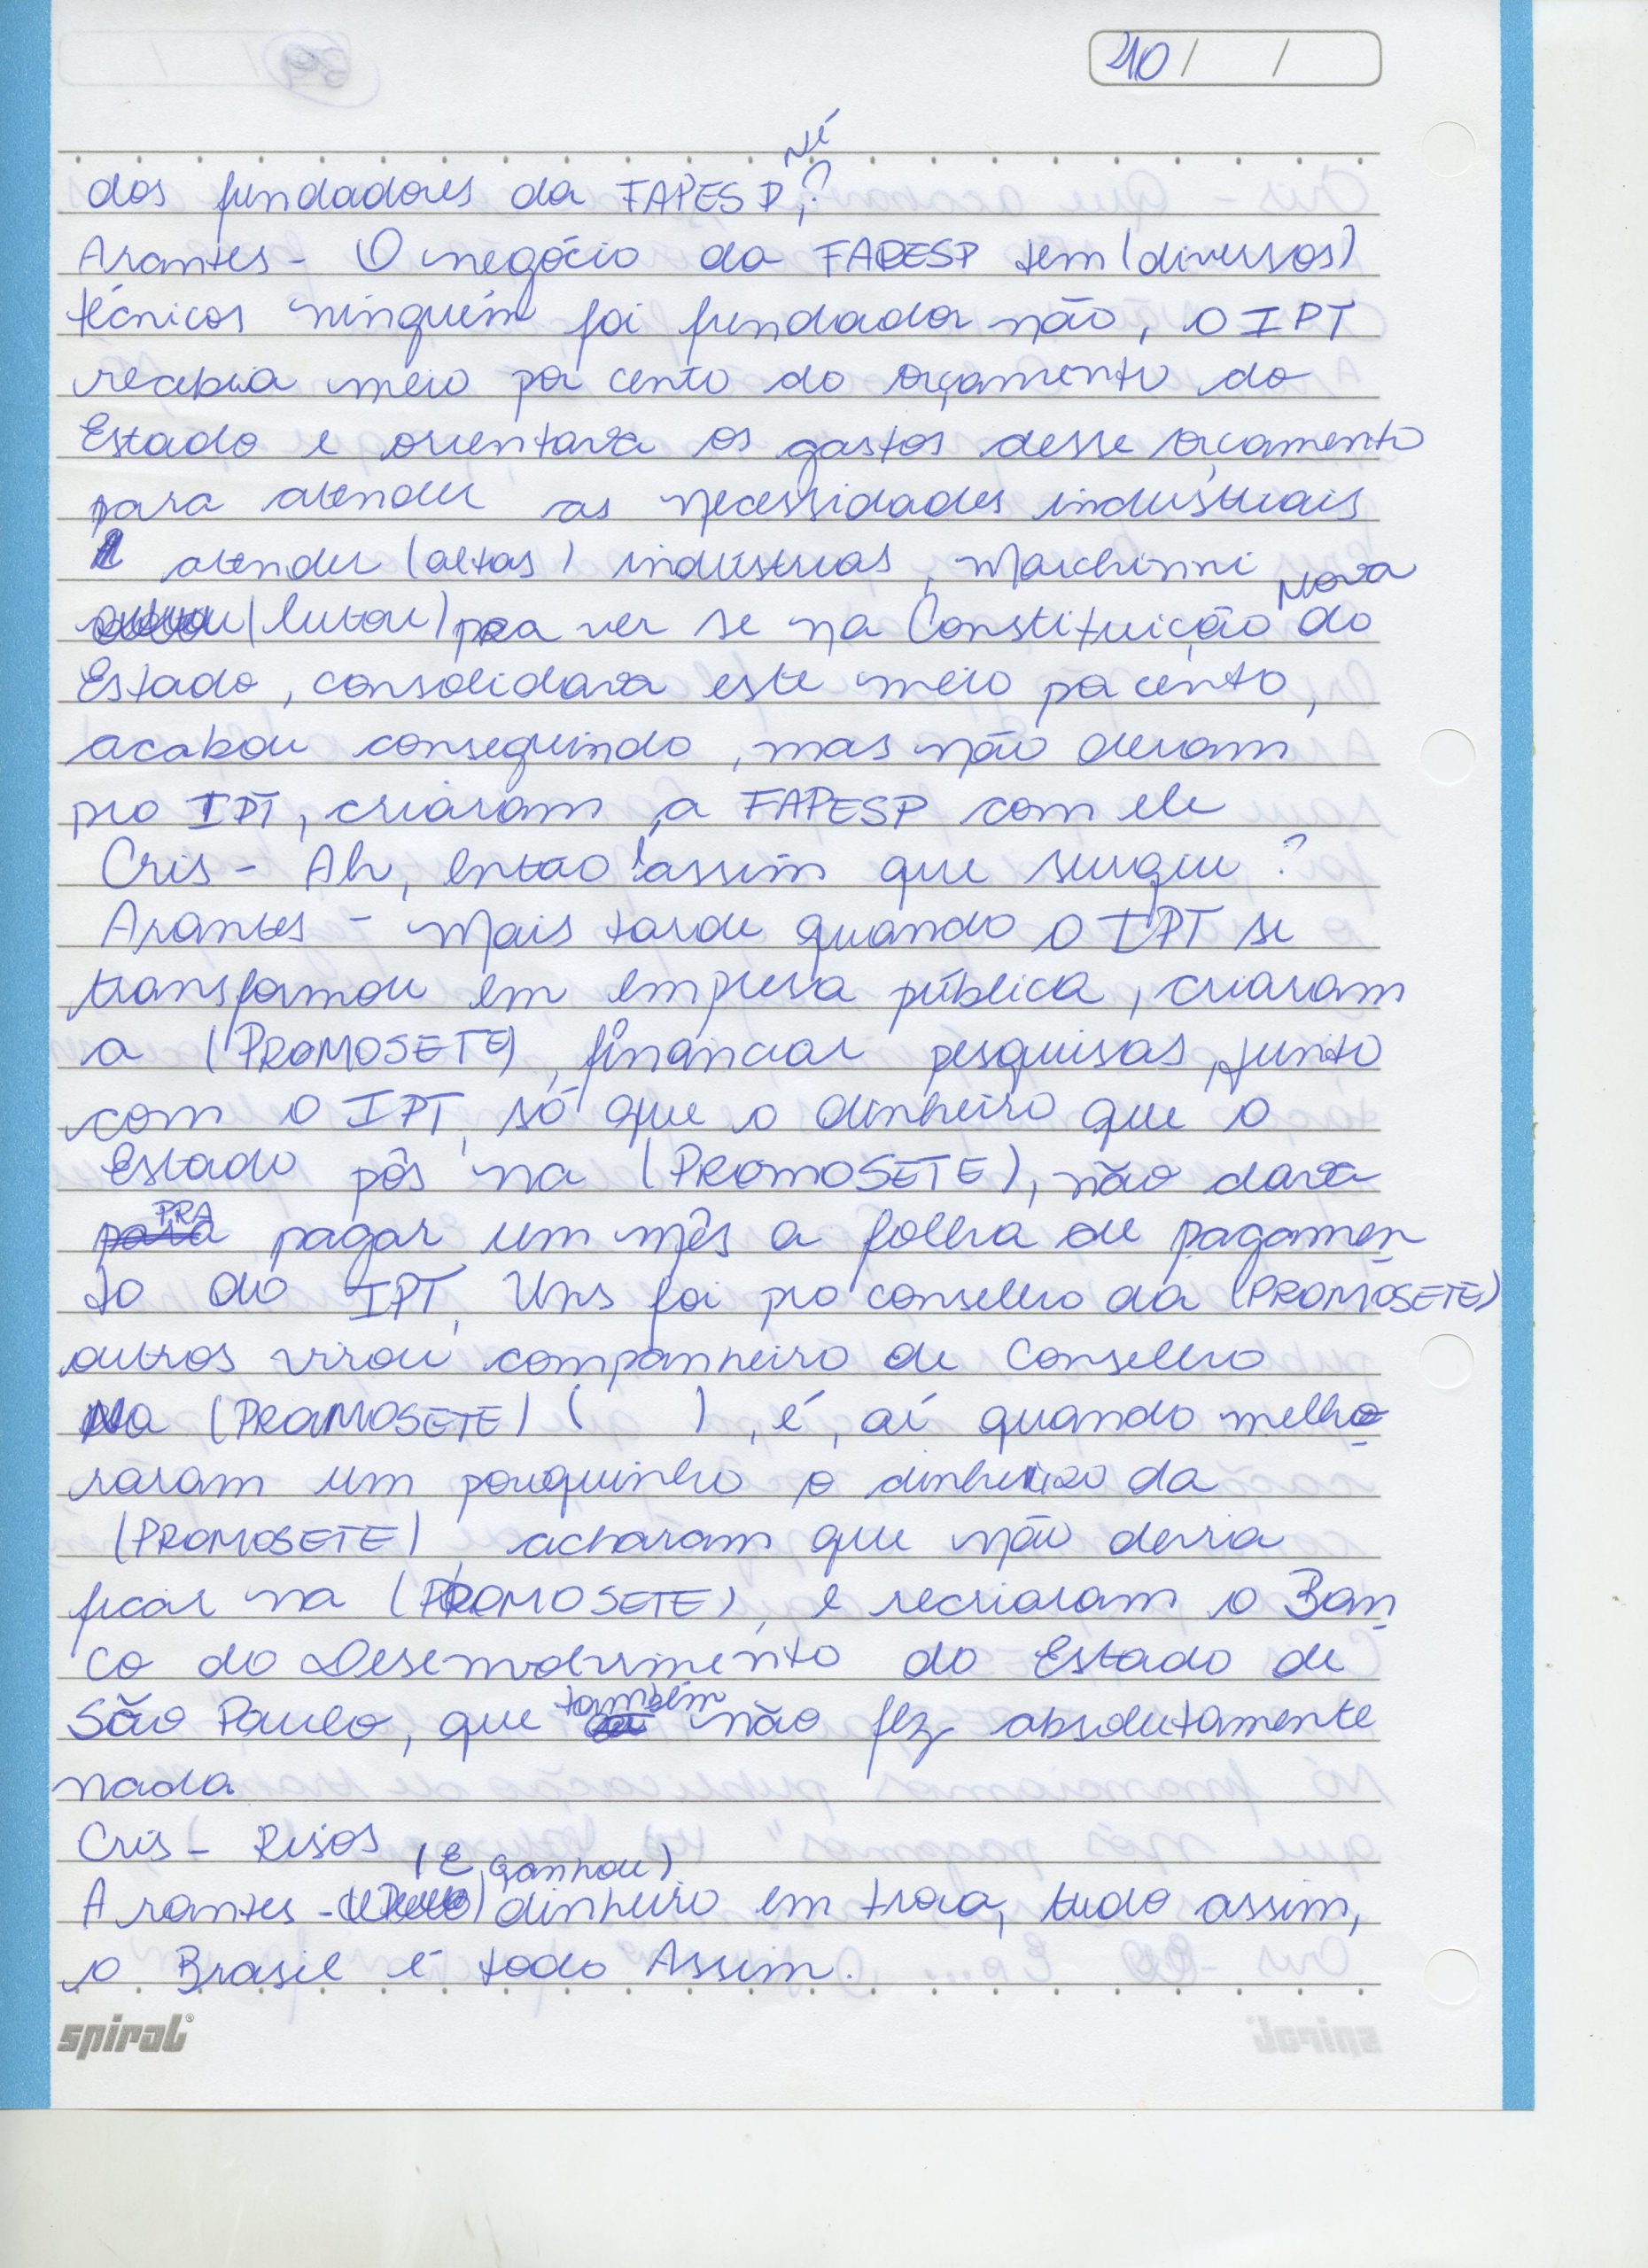 40/ /
né
dos fundadores da FAPESP,?
Arantes - O negócio da FAPESP tem (diversos)
técnicos ninguém foi fundador não, o IPT
recebia meio por cento do orçamento do
Estado e orientava os gastos desse orçamento
para atender as necessidades industriais
atender (altas) indústrias, Marchinni
(lutou) pra ver se na Constituição Nova do
Estado, consolidava este meio por cento,
acabou conseguindo, mas não deram
pro IPT, criaram a FAPESP com ele
Cris - Ah, então é assim que surgiu?
Arantes - Mais tarde quando o IPT se
transformou em empresa pública, criaram
a (PROMOSETE), financiar pesquisas junto
com o IPT, só que o dinheiro que o
Estado pôs na (PROMOSETE), não dava
para PRA pagar um mês a folha de pagamen
to do IPT, Uns foi pro conselho da (PROMOSETE)
outros virou companheiro de Conselho
Na (PROMOSETE) ( ), é, aí quando melho
raram um pouquinho o dinheiro da
(PROMOSETE), acharam que não devia
ficar na (PROMOSETE), e recriaram o Ban
co do Desenvolvimento do Estado de
São Paulo, que também não fez absolutamente
nada
Cris - Risos
Arantes - (E ganhou) dinheiro em troca, tudo assim,
o Brasil é todo Assim.
spiral®